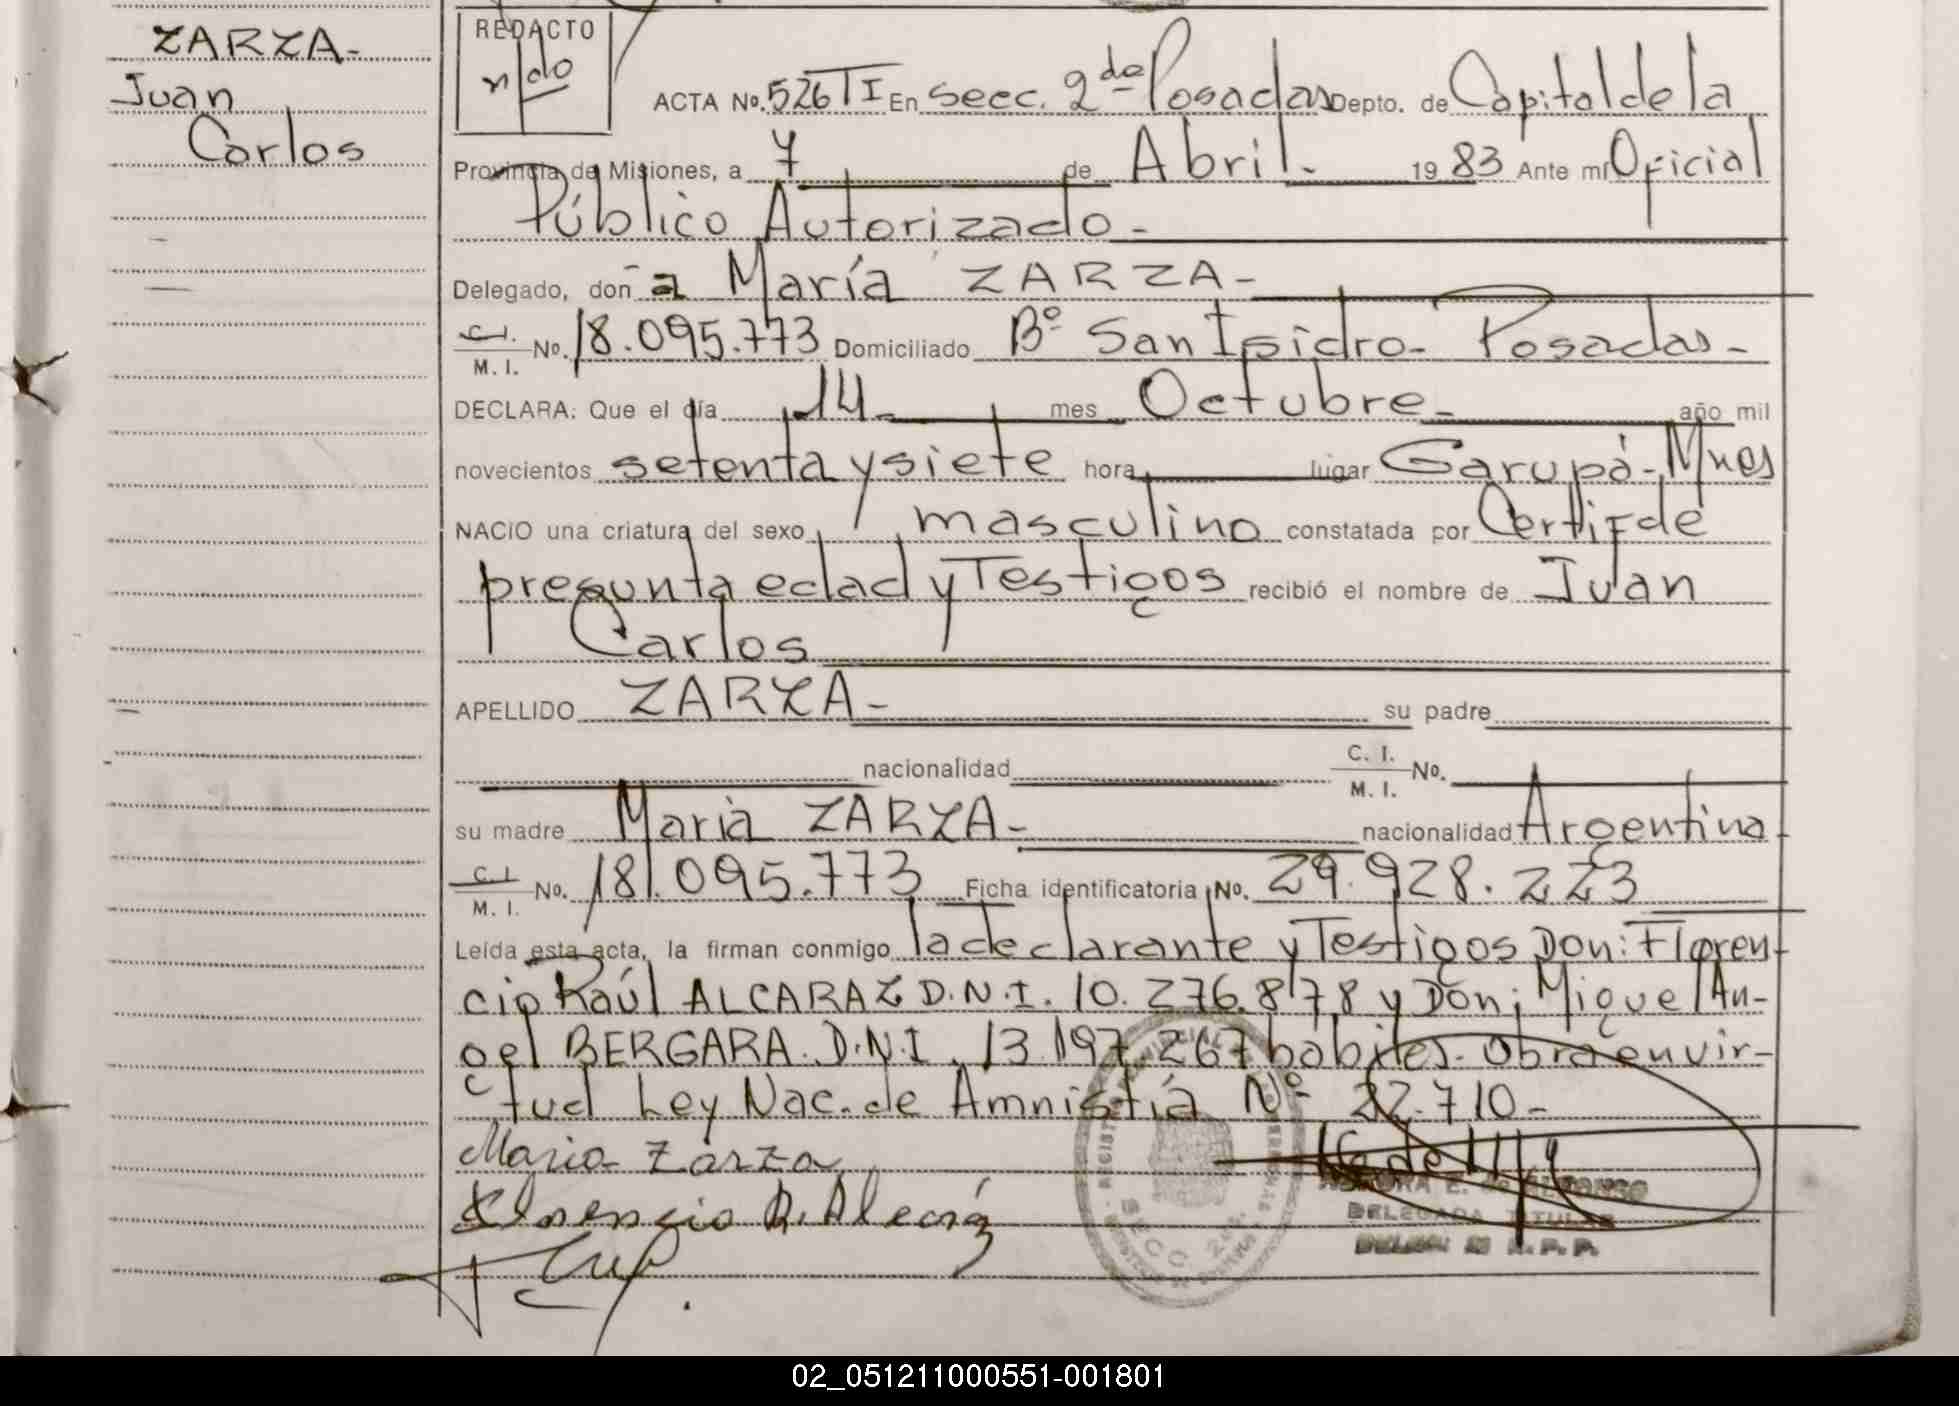 ZARZA-
Juan
Carlos
REDACTO
ACTA No. 526 TI En Secc. 2da Posadas Depto. de Capital de la
Provincia de Misiones, a 7 de Abril- 1983 Ante mí Oficial
Público Autorizado-
Delegado, don a María ZARZA-
C.I. M. I. No. 18.095.773 Domiciliado Bº San Isidro- Posadas-
DECLARA: Que el día 14- mes Octubre- año mil
novecientos setenta y siete hora lugar Garupá-Mnes
NACIO una criatura del sexo masculino constatada por Certif de
presunta edad y Testigos recibió el nombre de Juan
Carlos
APELLIDO ZARZA- su padre
nacionalidad C. I. M. I. No.
su madre María ZARZA- nacionalidad Argentina
C.I. M. I. No. 18.095.773 Ficha identificatoria No. 29.928.223
Leída esta acta, la firman conmigo la declarante y Testigos Don: Floren-
cio Raúl ALCARAZ D.N.I. 10.276.878 y Don; Miguel An-
gel BERGARA. D.N.I. 13.197.267 habiles- Obra en vir-
tud Ley Nac. de Amnistía Nº 22.710-
María Zarza
Florencio R. Alcaráz
DELEGADA TITULAR
02_051211000551-001801